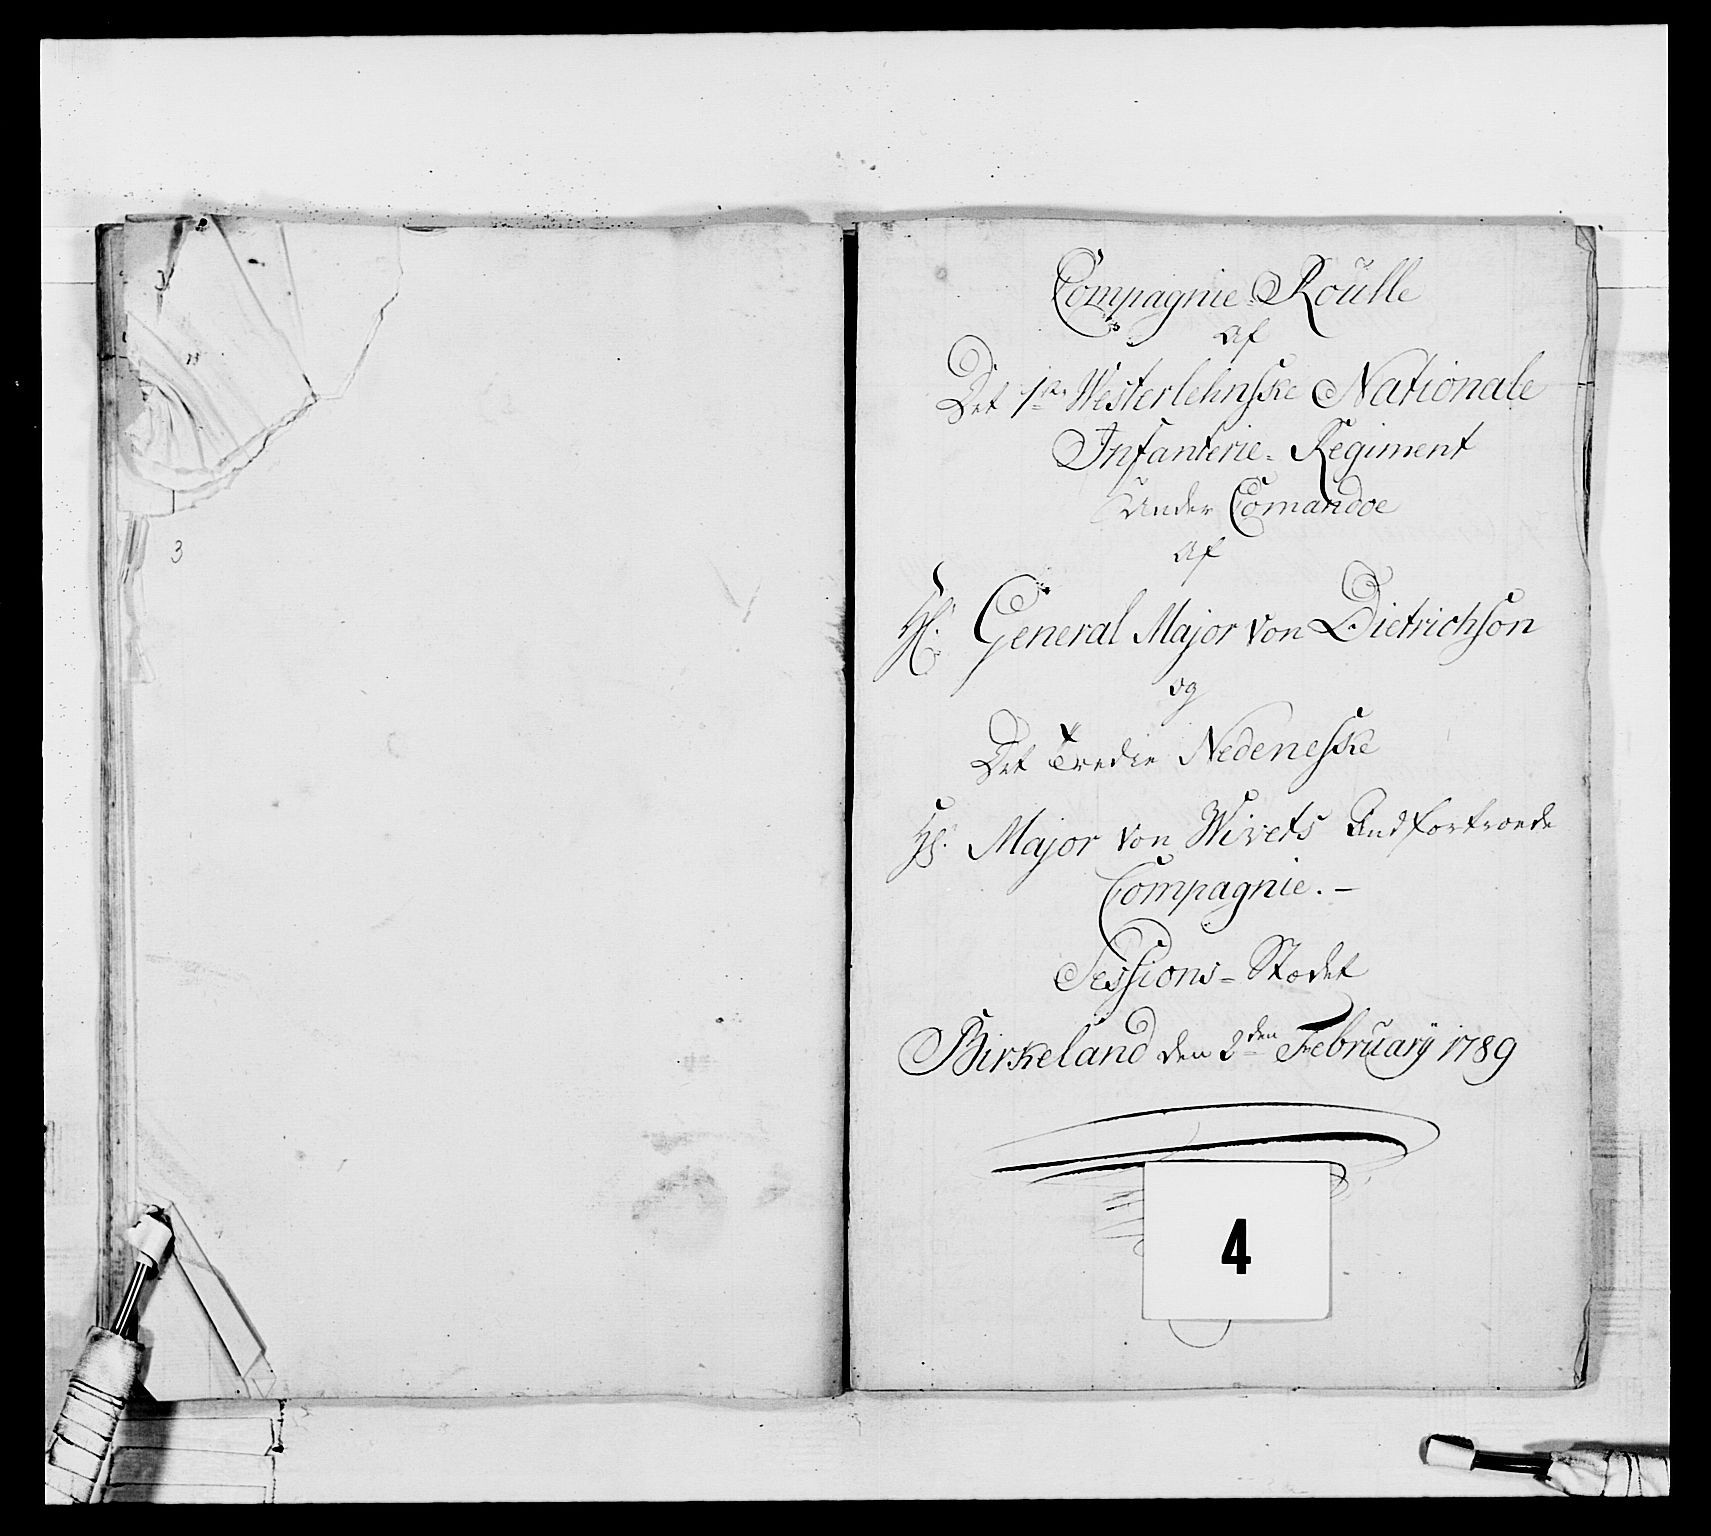 3
Compagnie-Roulle
Af
Det 1ste Westerlehnske Nationale
Infanterie-Regiment
Under Comandoe
Af
Hr. General Major von Dietrichson
og
Det Tredie Nedeneske
Hr. Major von Wivets Andfortroede
Compagnie. –
Sessions-Stædet
Birkeland den 2den February 1789
4